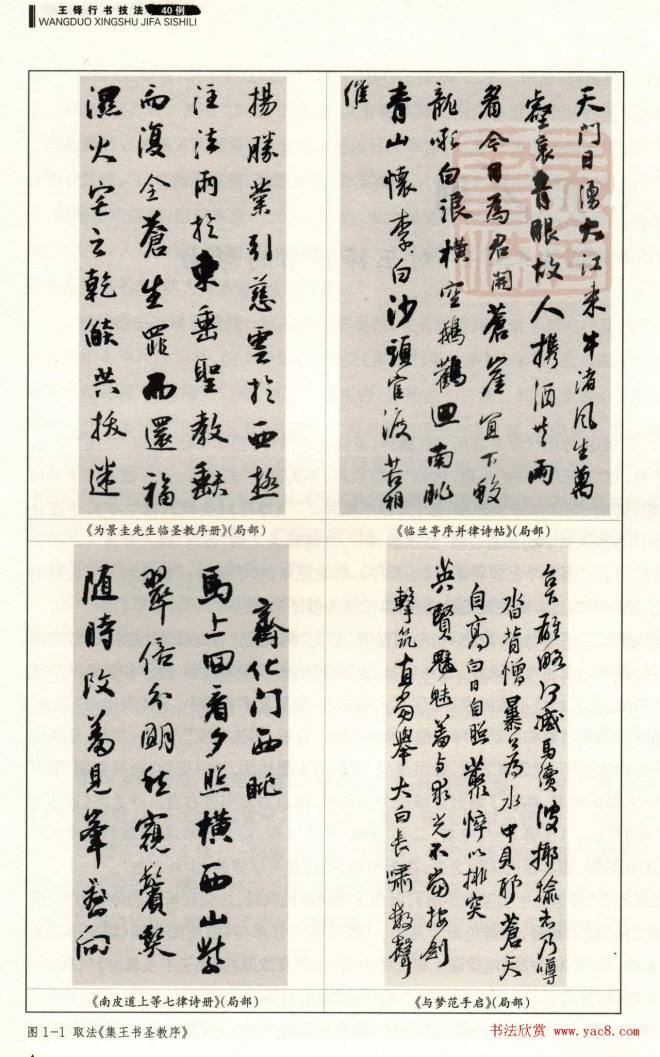 王铎行书技法 40例
WANGDUO XINGSHU JIFA SISHILI
揚勝業引慈雲於西極
注法雨於東垂聖教缺
而復全蒼生罪而還福
濕火宅之乾燄共拔迷
《为景圭先生临圣教序册》(局部)
天门日湧大江来牛渚风生萬
壑哀青眼故人携酒共
看今日為君開蒼崖
龍吼白浪橫空鵝鸛迴南
青山懷李白沙頭官渡苦相
催
《临兰亭序并律诗帖》(局部)
齊化门西眺
馬上回看夕照橫西山紫
翠倍分明秋窺鬢髮
随時改羞見峯巒向
《南皮道上等七律诗册》(局部)
雄略
揶揄去乃噂
沓背憎暴公為水中貝耶蒼天
自高白日自照叢悴以排突
英賢魑魅羞与争光不當按劍
擊筑直當舉大白長嘯数聲
《与梦范手启》(局部)
图 1-1 取法《集王书圣教序》
书法欣赏 www.yac8.com